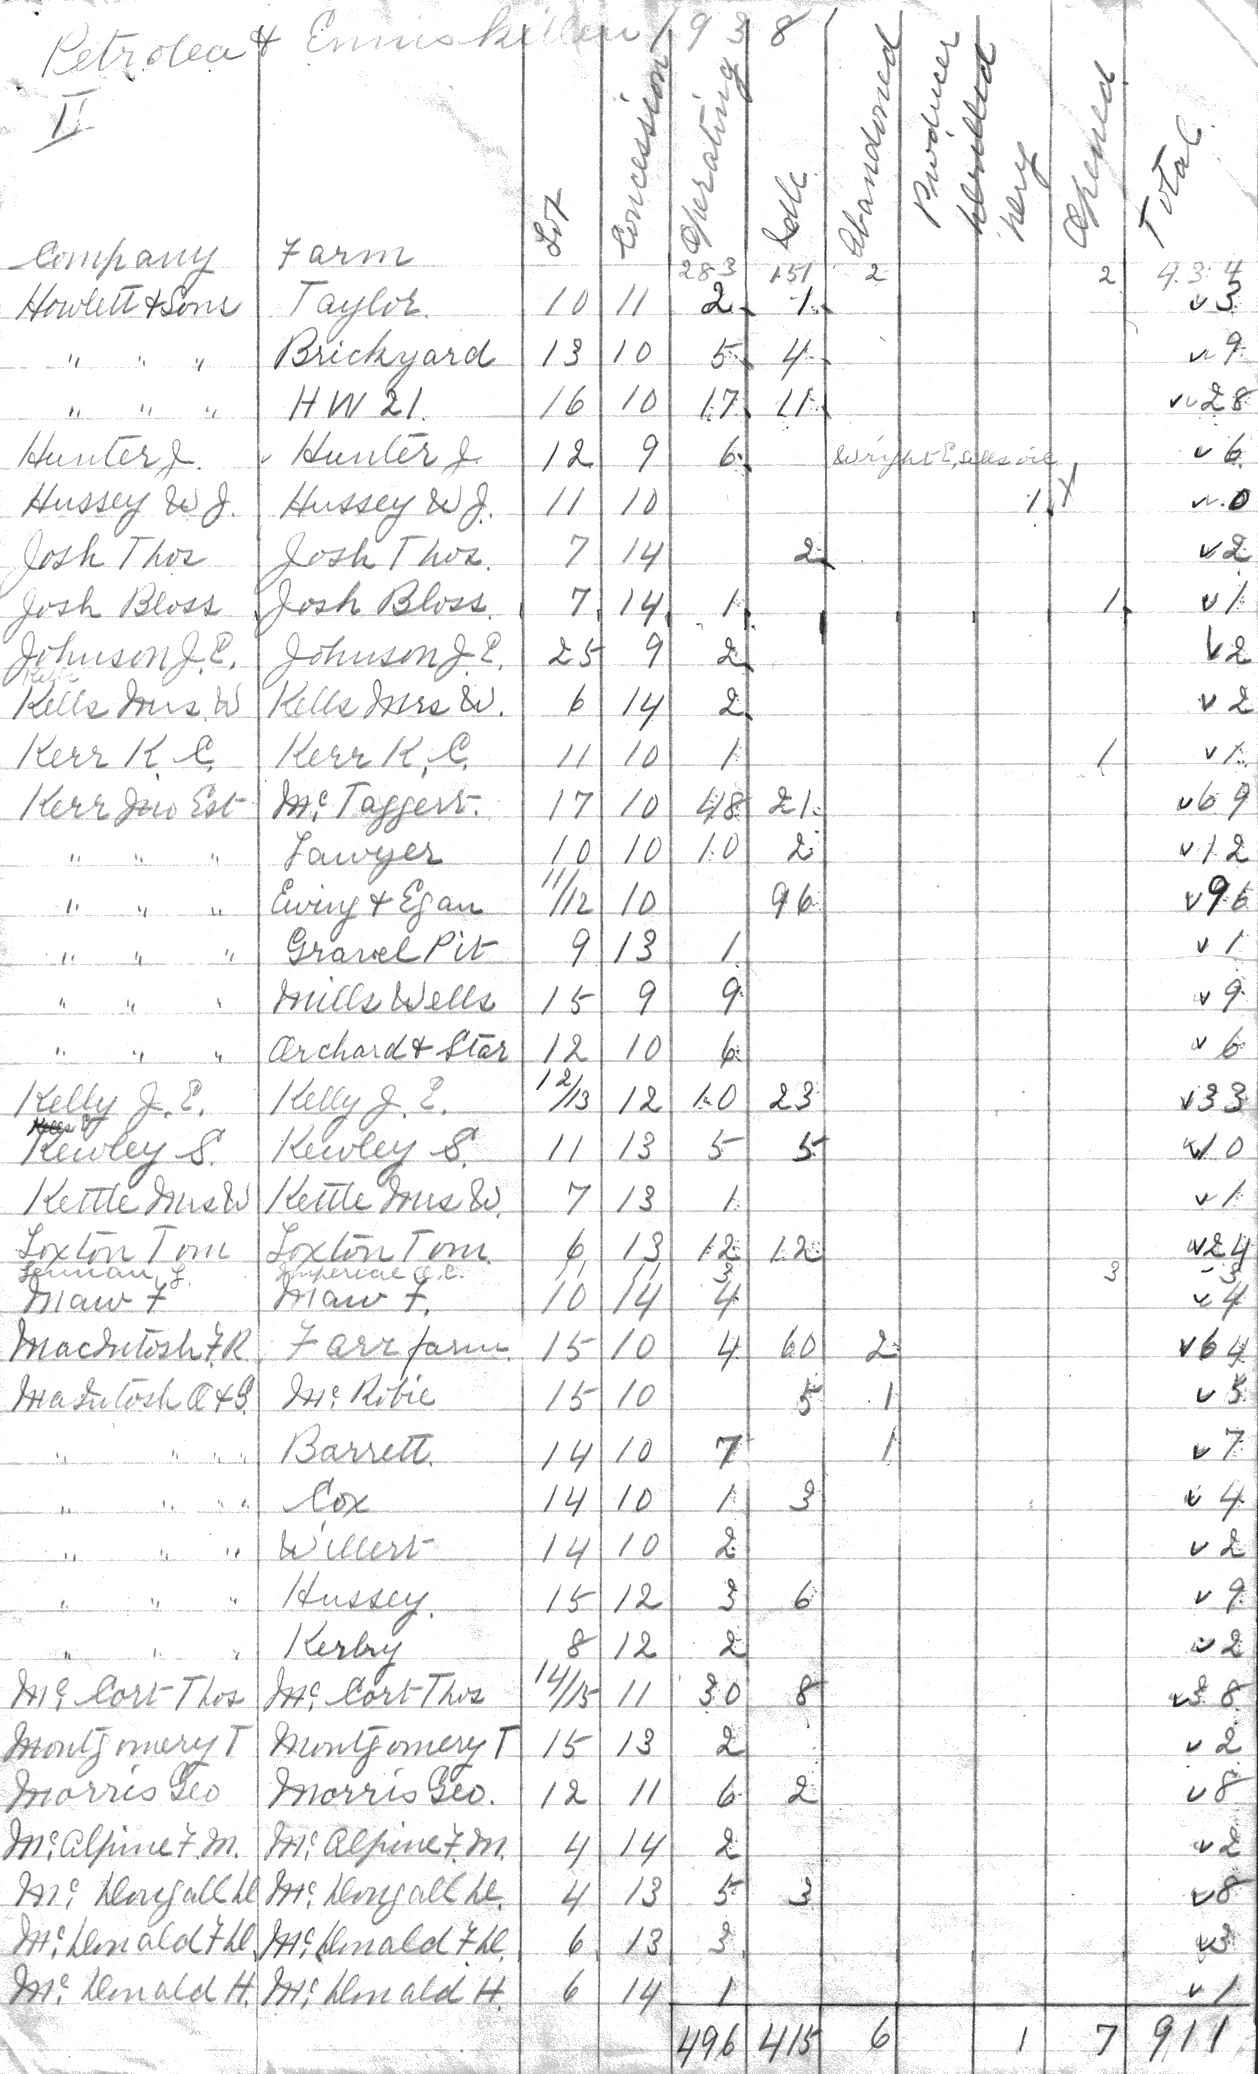 Petrolea & Enniskillen 1938
II
Company Farm Lot Concession Operating Idle Abandoned Producer Drilled Opened Total
283 151 2 2 434
Howlett & Sons Taylor. 10 11 2 1 ✓3
" " " Brickyard 13 10 5 4 ✓9
" " " HW 21. 16 10 17 11 ✓28
Hunter J. Hunter J. 12 9 6 Wright E, ✓6
Hussey W J. Hussey W J. 11 10 1 X ✓0
Josh Thos Josh Thos. 7 14 2 ✓2
Josh Bloss Josh Bloss. 7 14 1 1 ✓1
Johnson J. E. Johnson J. E. 25 9 2 ✓2
Kells Mrs. W Kells Mrs W. 6 14 2 ✓2
Kerr K. C. Kerr K. C. 11 10 1 1 ✓1
Kerr Jno Est Mc Taggert. 17 10 48 21 ✓69
" " " Lawyer 10 10 10 2 ✓12
" " " Ewing & Egan 11/12 10 96 ✓96
" " " Gravel Pit 9 13 1 ✓1
" " " Mills Wells 15 9 9 ✓9
" " " Orchard & Star 12 10 6 ✓6
Kelly J. E. Kelly J. E. 12/13 12 10 23 ✓33
Kewley S. Kewley S. 11 13 5 5 ✓10
Kettle Mrs W Kettle Mrs W. 7 13 1 ✓1
Loxton Tom Loxton Tom. 6 13 12 12 ✓24
Imperial O. C. 11 11 3 3 3
Maw F Maw F. 10 14 4 ✓4
MacIntosh F. R. Farr farm. 15 10 4 60 2 ✓64
MaIntosh A & G. Mc Robie 15 10 5 1 ✓5
" " " " Barrett. 14 10 7 1 ✓7
" " " " Cox 14 10 1 3 ✓4
" " " Willert 14 10 2 ✓2
" " " Hussey. 15 12 3 6 ✓9
" " " Kerby 8 12 2 ✓2
Mc Cort Thos Mc Cort Thos 14/15 11 30 8 ✓38
Montgomery T Montgomery T 15 13 2 ✓2
Morris Geo Morris Geo. 12 11 6 2 ✓8
Mc Alpine F. M. Mc Alpine F. M. 4 14 2 ✓2
Mc Dougall D Mc Dougall D. 4 13 5 3 ✓8
Mc Donald F D. Mc Donald F D. 6 13 3 ✓3
Mc Donald H. Mc Donald H. 6 14 1 ✓1
496 415 6 1 7 911